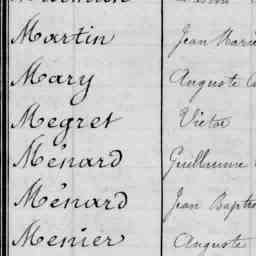 Martin Jean Marie
Mary Auguste
Megret Victor
Ménard Guillaume
Ménard Jean Baptis
Menier Auguste